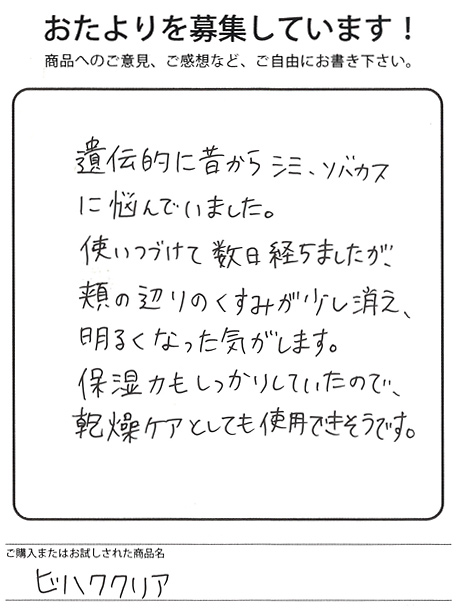 おたよりを募集しています！
商品へのご意見、ご感想など、ご自由にお書き下さい。
遺伝的に昔からシミ、ソバカス
に悩んでいました。
使いつづけて数日経ちましたが、
頬の辺りのくすみが少し消え、
明るくなった気がします。
保湿力もしっかりしていたので、
乾燥ケアとしても使用できそうです。
ご購入またはお試しされた商品名
ビハククリア